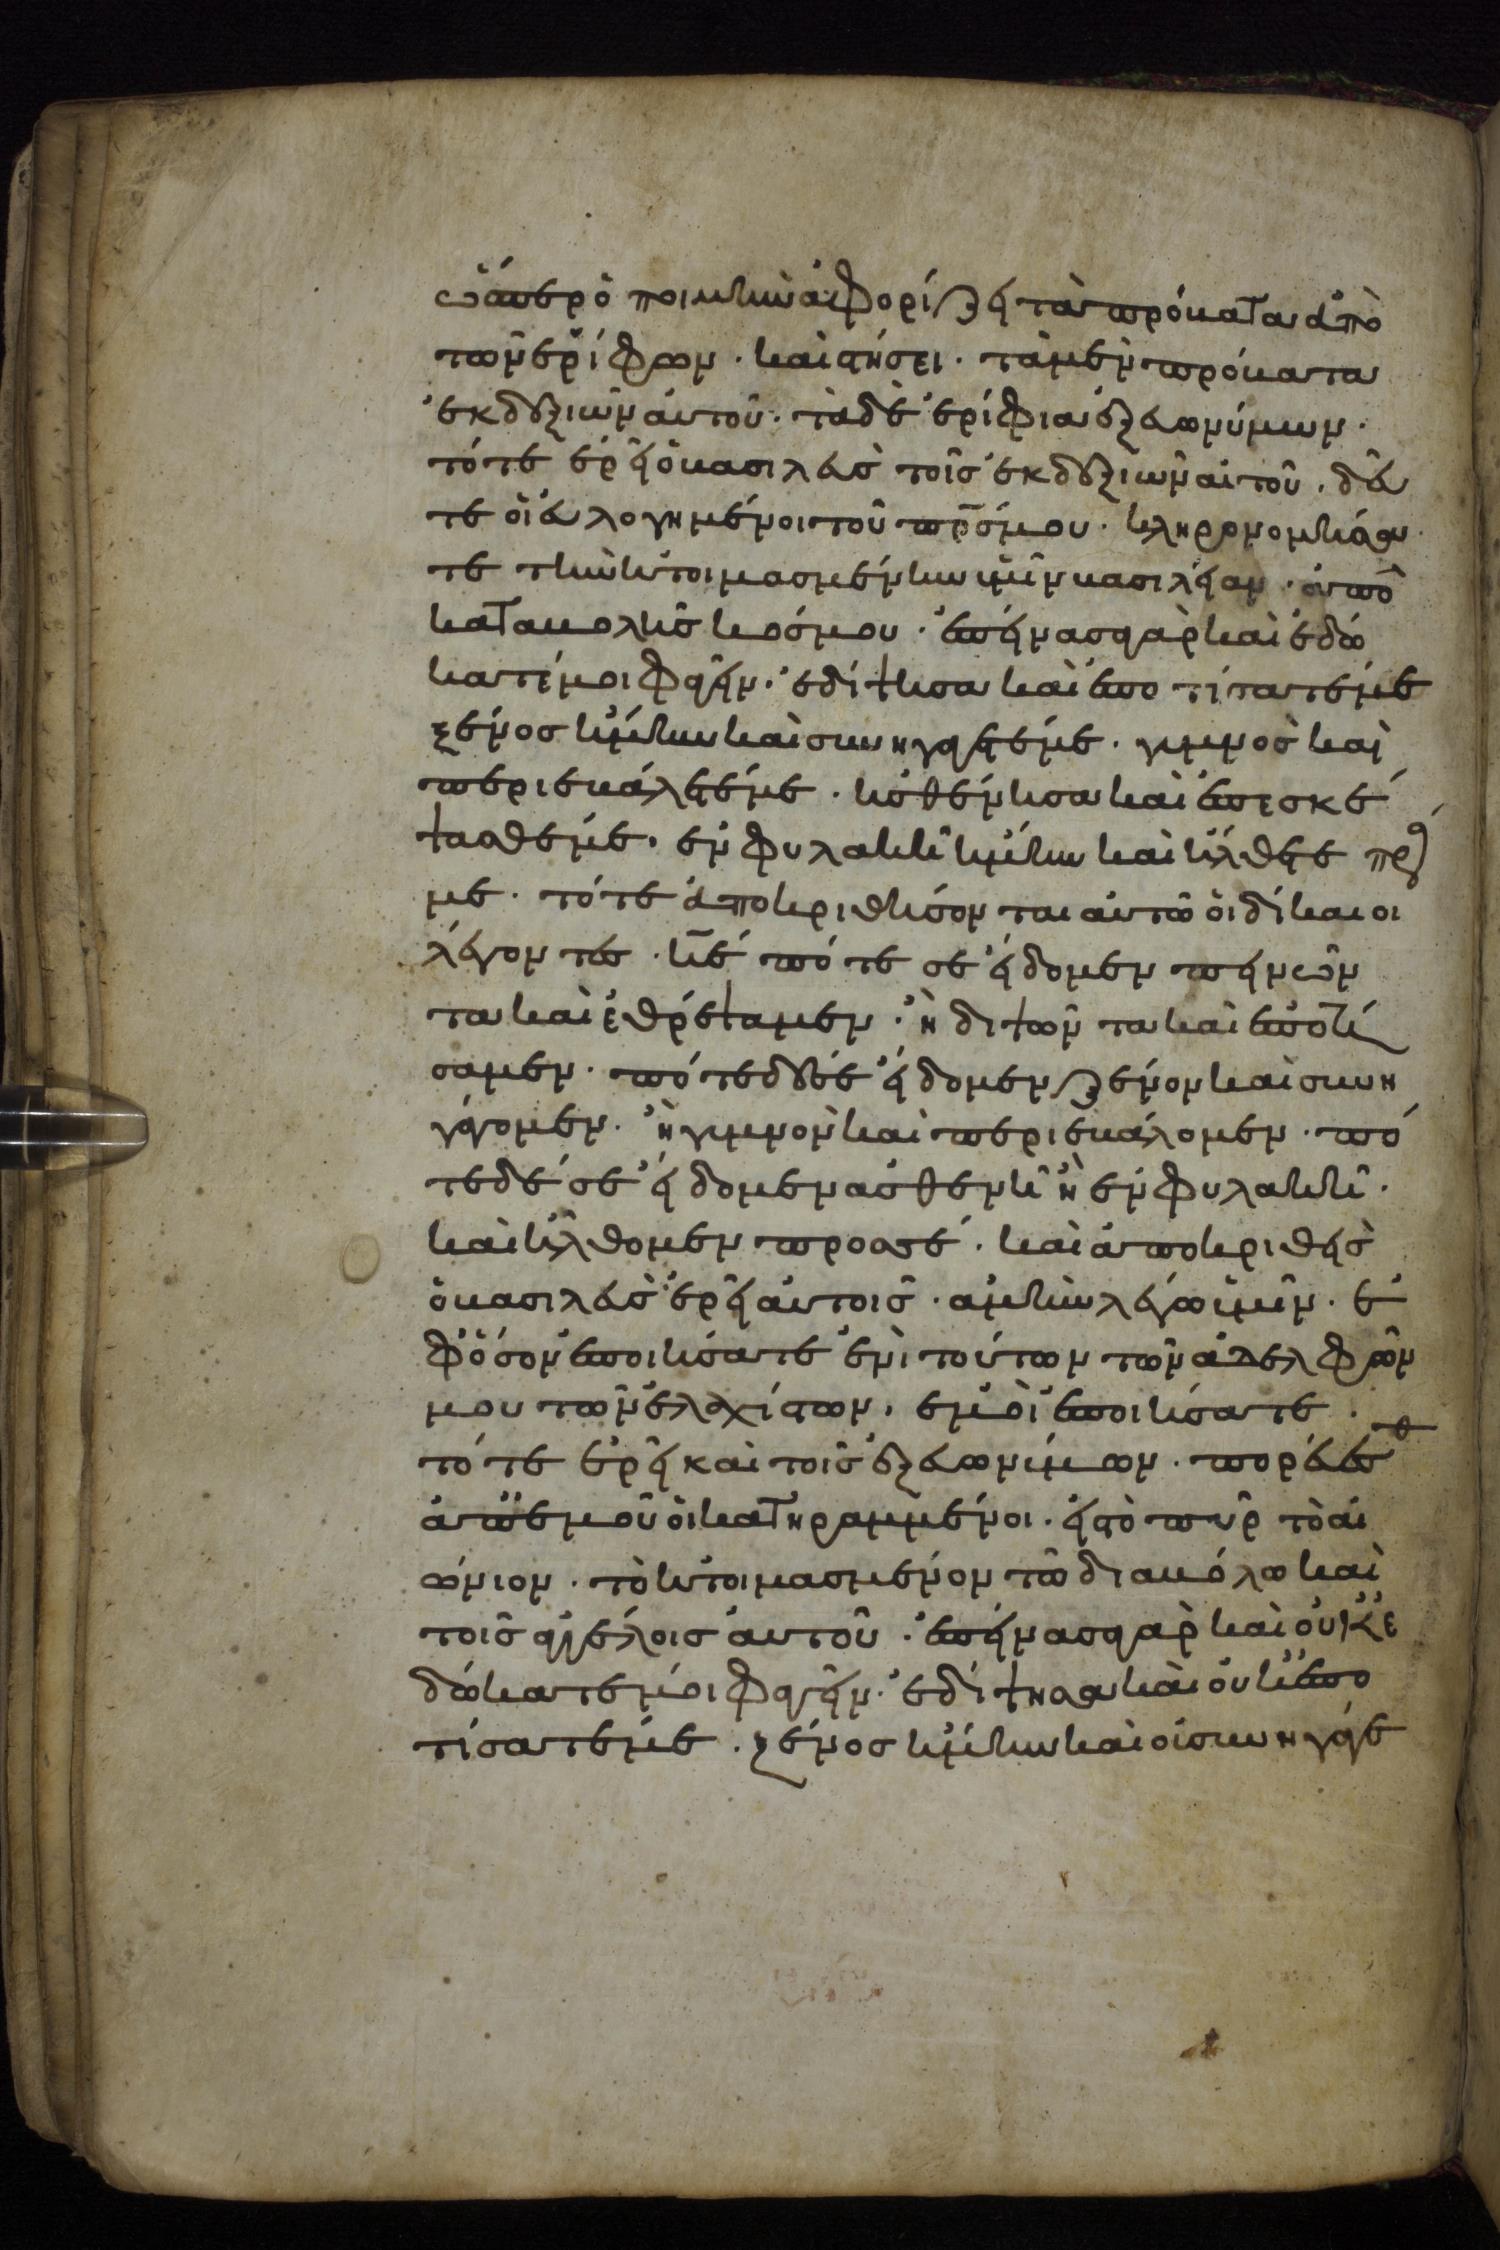 ὥσπερ ὁ ποιμὴν ἀφορίζει τὰ πρόβατα ἀπὸ
τῶν ἐρίφων · καὶ στήσει · τὰ μὲν πρόβατα
ἐκ δεξιῶν αὐτοῦ · τὰ δὲ ἐρίφια ἐξ εὐωνύμων ·
τότε ἐρεῖ ὁ βασιλεὺς τοῖς ἐκ δεξιῶν αὐτοῦ · δεῦ
τε οἱ εὐλογημένοι τοῦ πρς μου · κληρονομήσα
τε τὴν ἡτοιμασμένην ὑμῖν βασιλείαν · ἀπὸ
καταβολῆς κόσμου · ἐπείνασα γὰρ καὶ ἐδώ
κατέ μοι φαγεῖν · ἐδίψησα καὶ ἐποτίσατέ με
ξένος ἤμην καὶ συνηγάγετέ με · γυμνὸς καὶ
περιεβάλετέ με · ἠσθένησα καὶ ἐπεσκέ
ψασθέ με · ἐν φυλακῆ ἤμην καὶ ἤλθετε πρός
με · τότε ἀποκριθήσονται αὐτῶ οἱ δίκαιοι
λέγοντες · κε πότε σε εἴδομεν πεινῶν
τα καὶ ἐθρέψαμεν · ἢ διψῶντα καὶ ἐποτί
σαμεν · πότε δέ σε εἴδομεν ξένον καὶ συνη
γάγομεν · ἢ γυμνὸν καὶ περιεβάλομεν · πό
τε δέ σε εἴδομεν ἀσθενῆ ἢ ἐν φυλακῆ ·
καὶ ἤλθομεν προς σέ · καὶ ἀποκριθεὶς
ὁ βασιλεὺς ἐρεῖ αὐτοῖς · ἀμὴν λέγω ὑμῖν · ἐ
φ ὅσον ἐποιήσατε ἑνὶ τούτων τῶν ἀδελφῶν
μου τῶν ἐλαχίστων · ἐμοὶ ἐποιήσατε ·
τότε ἐρεῖ καὶ τοῖς ἐξ εὐωνύμων · πορεύεσθε
ἀπ ἐμοῦ οἱ κατηραμμένοι · εἰς τὸ πῦρ τὸ αἰ
ώνιον · τὸ ἡτοιμασμένον τῶ διαβόλω καὶ
τοῖς ἀγγέλοις αὐτοῦ · ἐπείνασα γὰρ καὶ οὐκ ἐ
δώκατέ μοι φαγεῖν · ἐδίψησα καὶ οὐκ ἐπο
τίσατέ με · ξένος ἤμην καὶ οὐ συνηγάγε